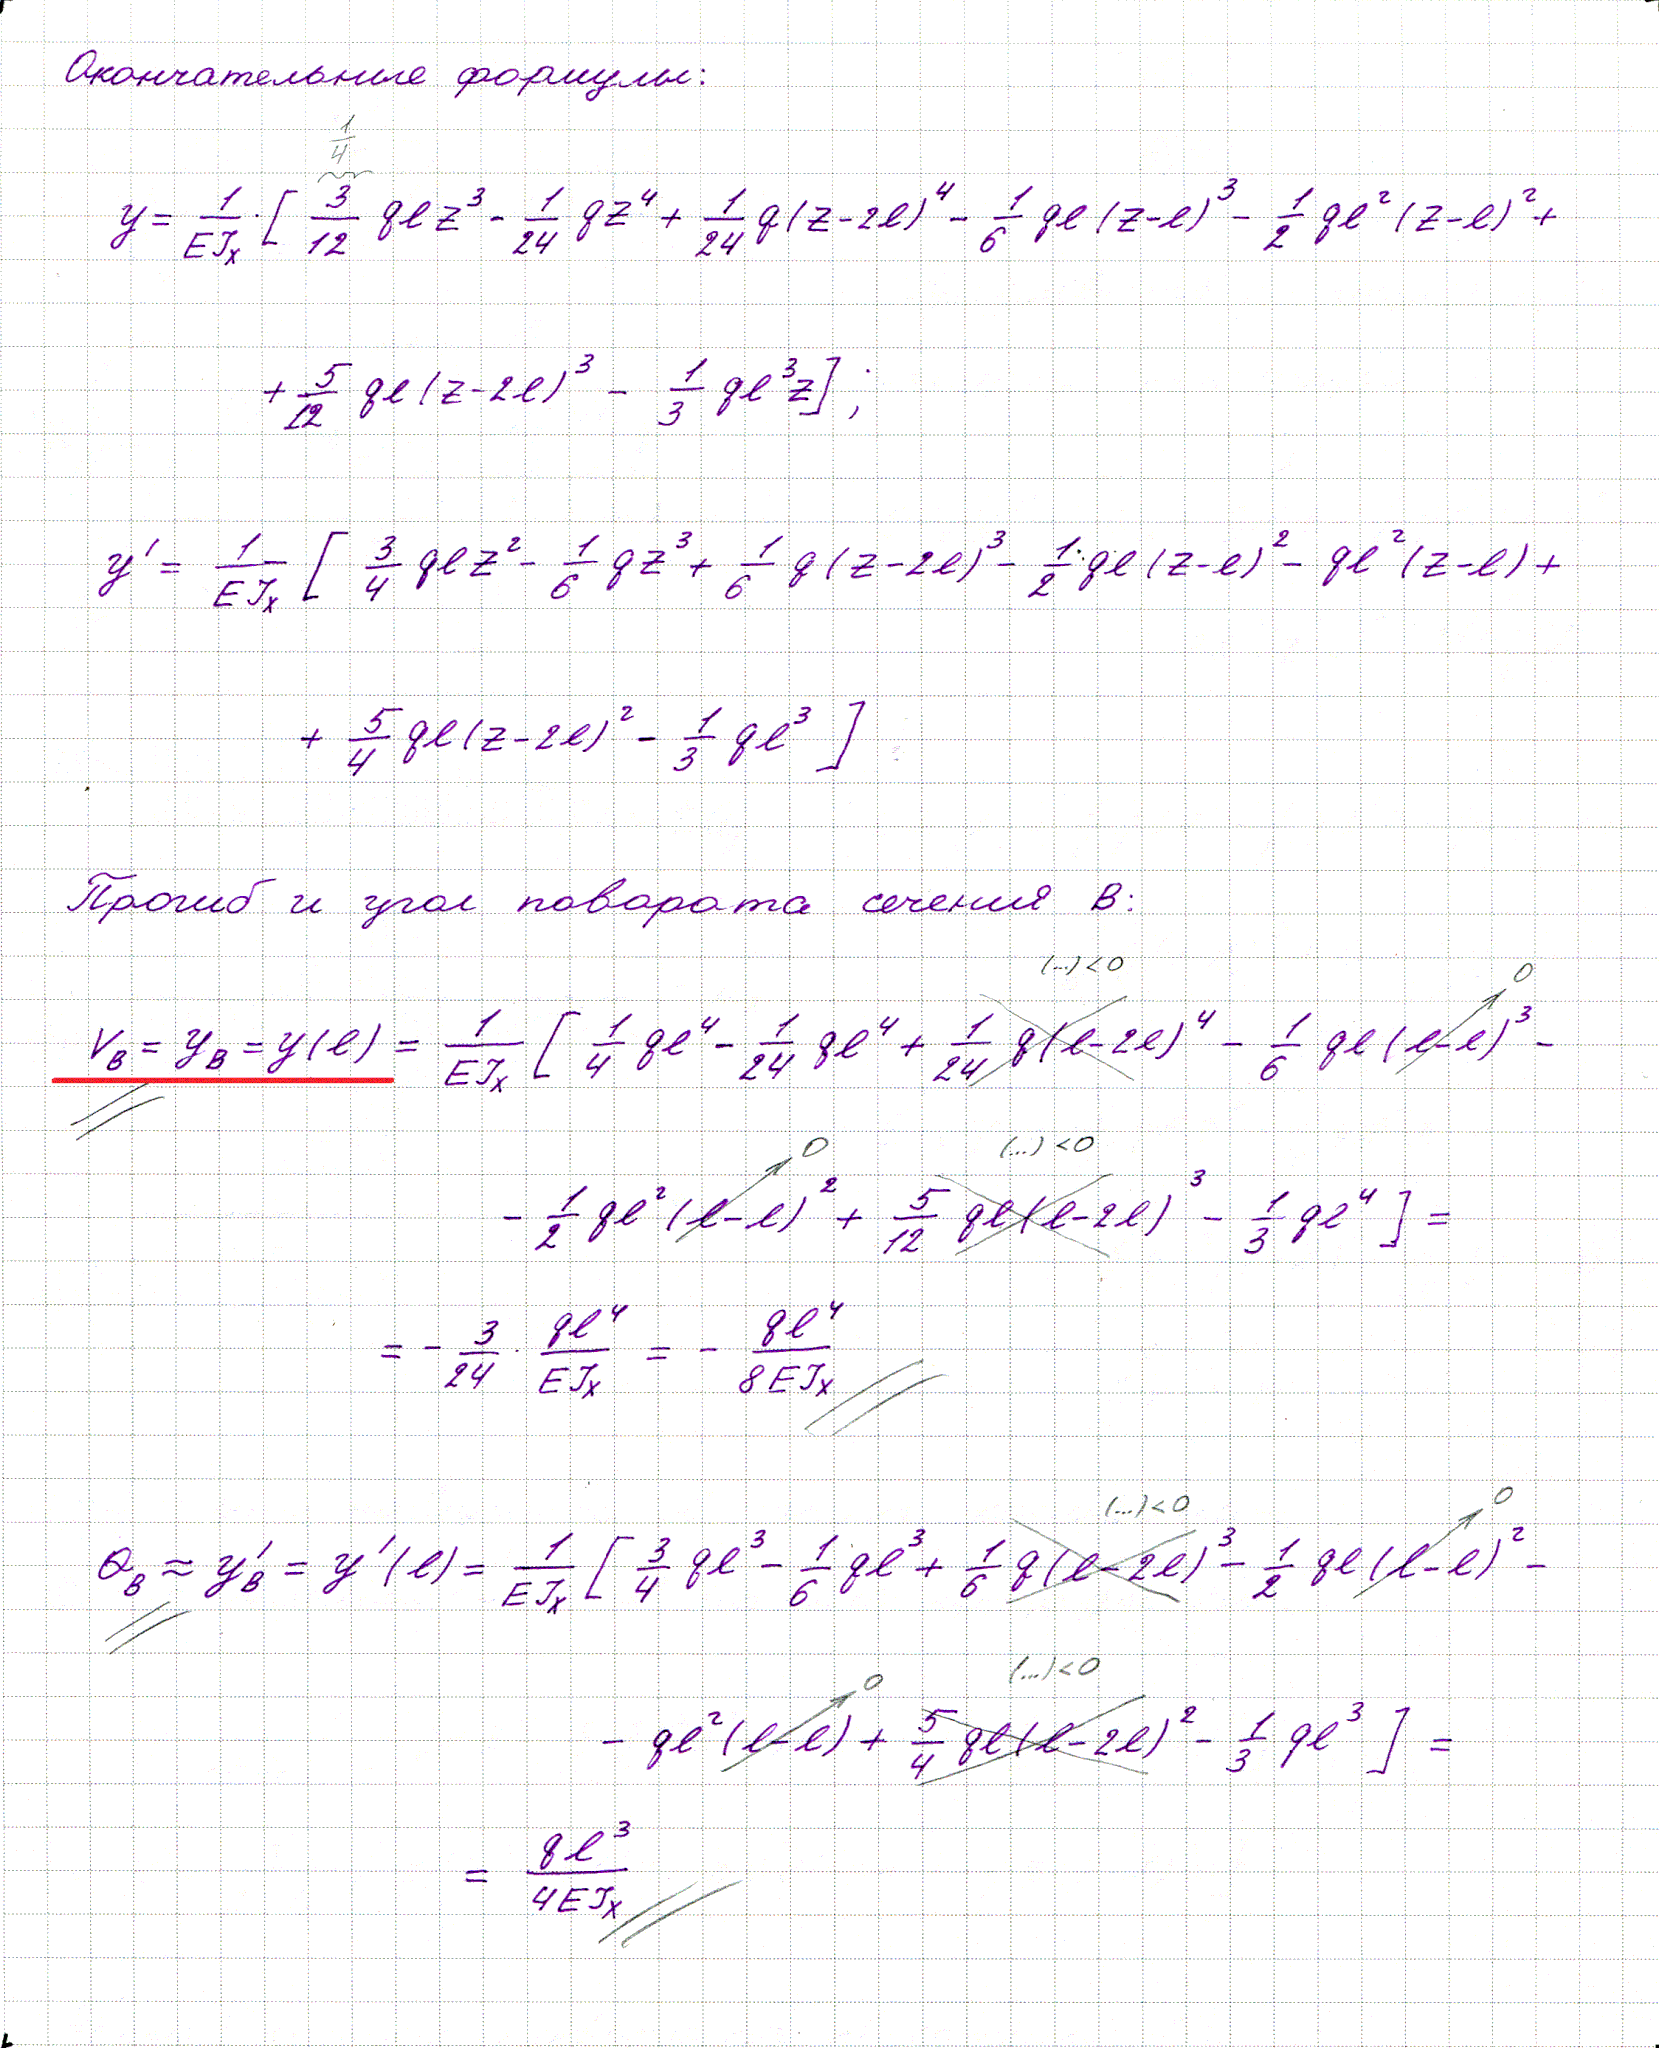 Окончательные формулы:
1/4
y = 1/EJₓ · [ 3/12 qlz³ - 1/24 qz⁴ + 1/24 q(z-2l)⁴ - 1/6 ql(z-l)³ - 1/2 ql²(z-l)² +
+ 5/12 ql(z-2l)³ - 1/3 ql³z ] ;
y' = 1/EJₓ [ 3/4 qlz² - 1/6 qz³ + 1/6 q(z-2l)³ - 1/2 · ql(z-l)² - ql²(z-l) +
+ 5/4 ql(z-2l)² - 1/3 ql³ ]
Прогиб и угол поворота сечения В:
(...) < 0 0
V_B = y_B = y(l) = 1/EJₓ [ 1/4 ql⁴ - 1/24 ql⁴ + 1/24 q(l-2l)⁴ - 1/6 ql(l-l)³ -
0 (...) < 0
- 1/2 ql²(l-l)² + 5/12 ql(l-2l)³ - 1/3 ql⁴ ] =
= - 3/24 · ql⁴/EJₓ = - ql⁴/8EJₓ
(...) < 0 0
Θ_B ≈ y'_B = y'(l) = 1/EJₓ [ 3/4 ql³ - 1/6 ql³ + 1/6 q(l-2l)³ - 1/2 ql(l-l)² -
0 (...) < 0
- ql²(l-l) + 5/4 ql(l-2l)² - 1/3 ql³ ] =
= ql³/4EJₓ